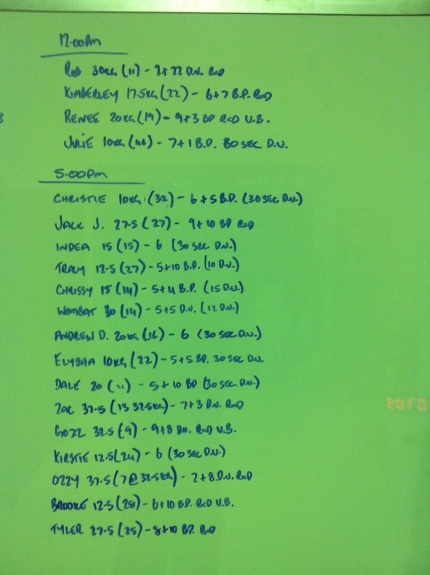 12.00pm
Rob 30kg (11) - 2+22 D.U. RxD
KIMBERLEY 17.5kg (22) - 6+7 B.P. RxD
RENEE 20kg (19) - 9+3 BP RxD U.B.
JULIE 10kg (46) - 7+1 B.P. 30 SEC D.U.
5.00pm
CHRISTIE 10kg (32) - 6+5 B.P. (30 SEC D.U.)
JACK J. 27.5 (27) - 9+10 BP RxD
INDEA 15 (15) - 6 (30 SEC D.U.)
TRACY 12.5 (27) - 5+10 B.P. (10 D.U.)
CHRISSY 15 (14) - 5+4 B.P. (15 D.U.)
WOMBAT 30 (14) - 5+5 D.U. (12 D.U.)
ANDREW D. 20kg (16) - 6 (30 SEC D.U.)
ELYSHA 10kg (22) - 5+5 BP. 30 SEC D.U.
DALE 20 (11) - 5+10 BP (30 SEC D.U.)
ZAC 37.5 (13 32.5kg) - 7+3 D.U. RxD
GOZZ 32.5 (9) - 9+8 D.U. RxD U.B.
KIRSTIE 12.5 (24) - 6 (30 SEC D.U.)
OZZY 37.5 (7@32.5kg) - 2+8 D.U. RxD
BROOKE 12.5 (28) - 6+10 B.P. RxD U.B.
TYLER 27.5 (25) - 8+10 BP. RxD